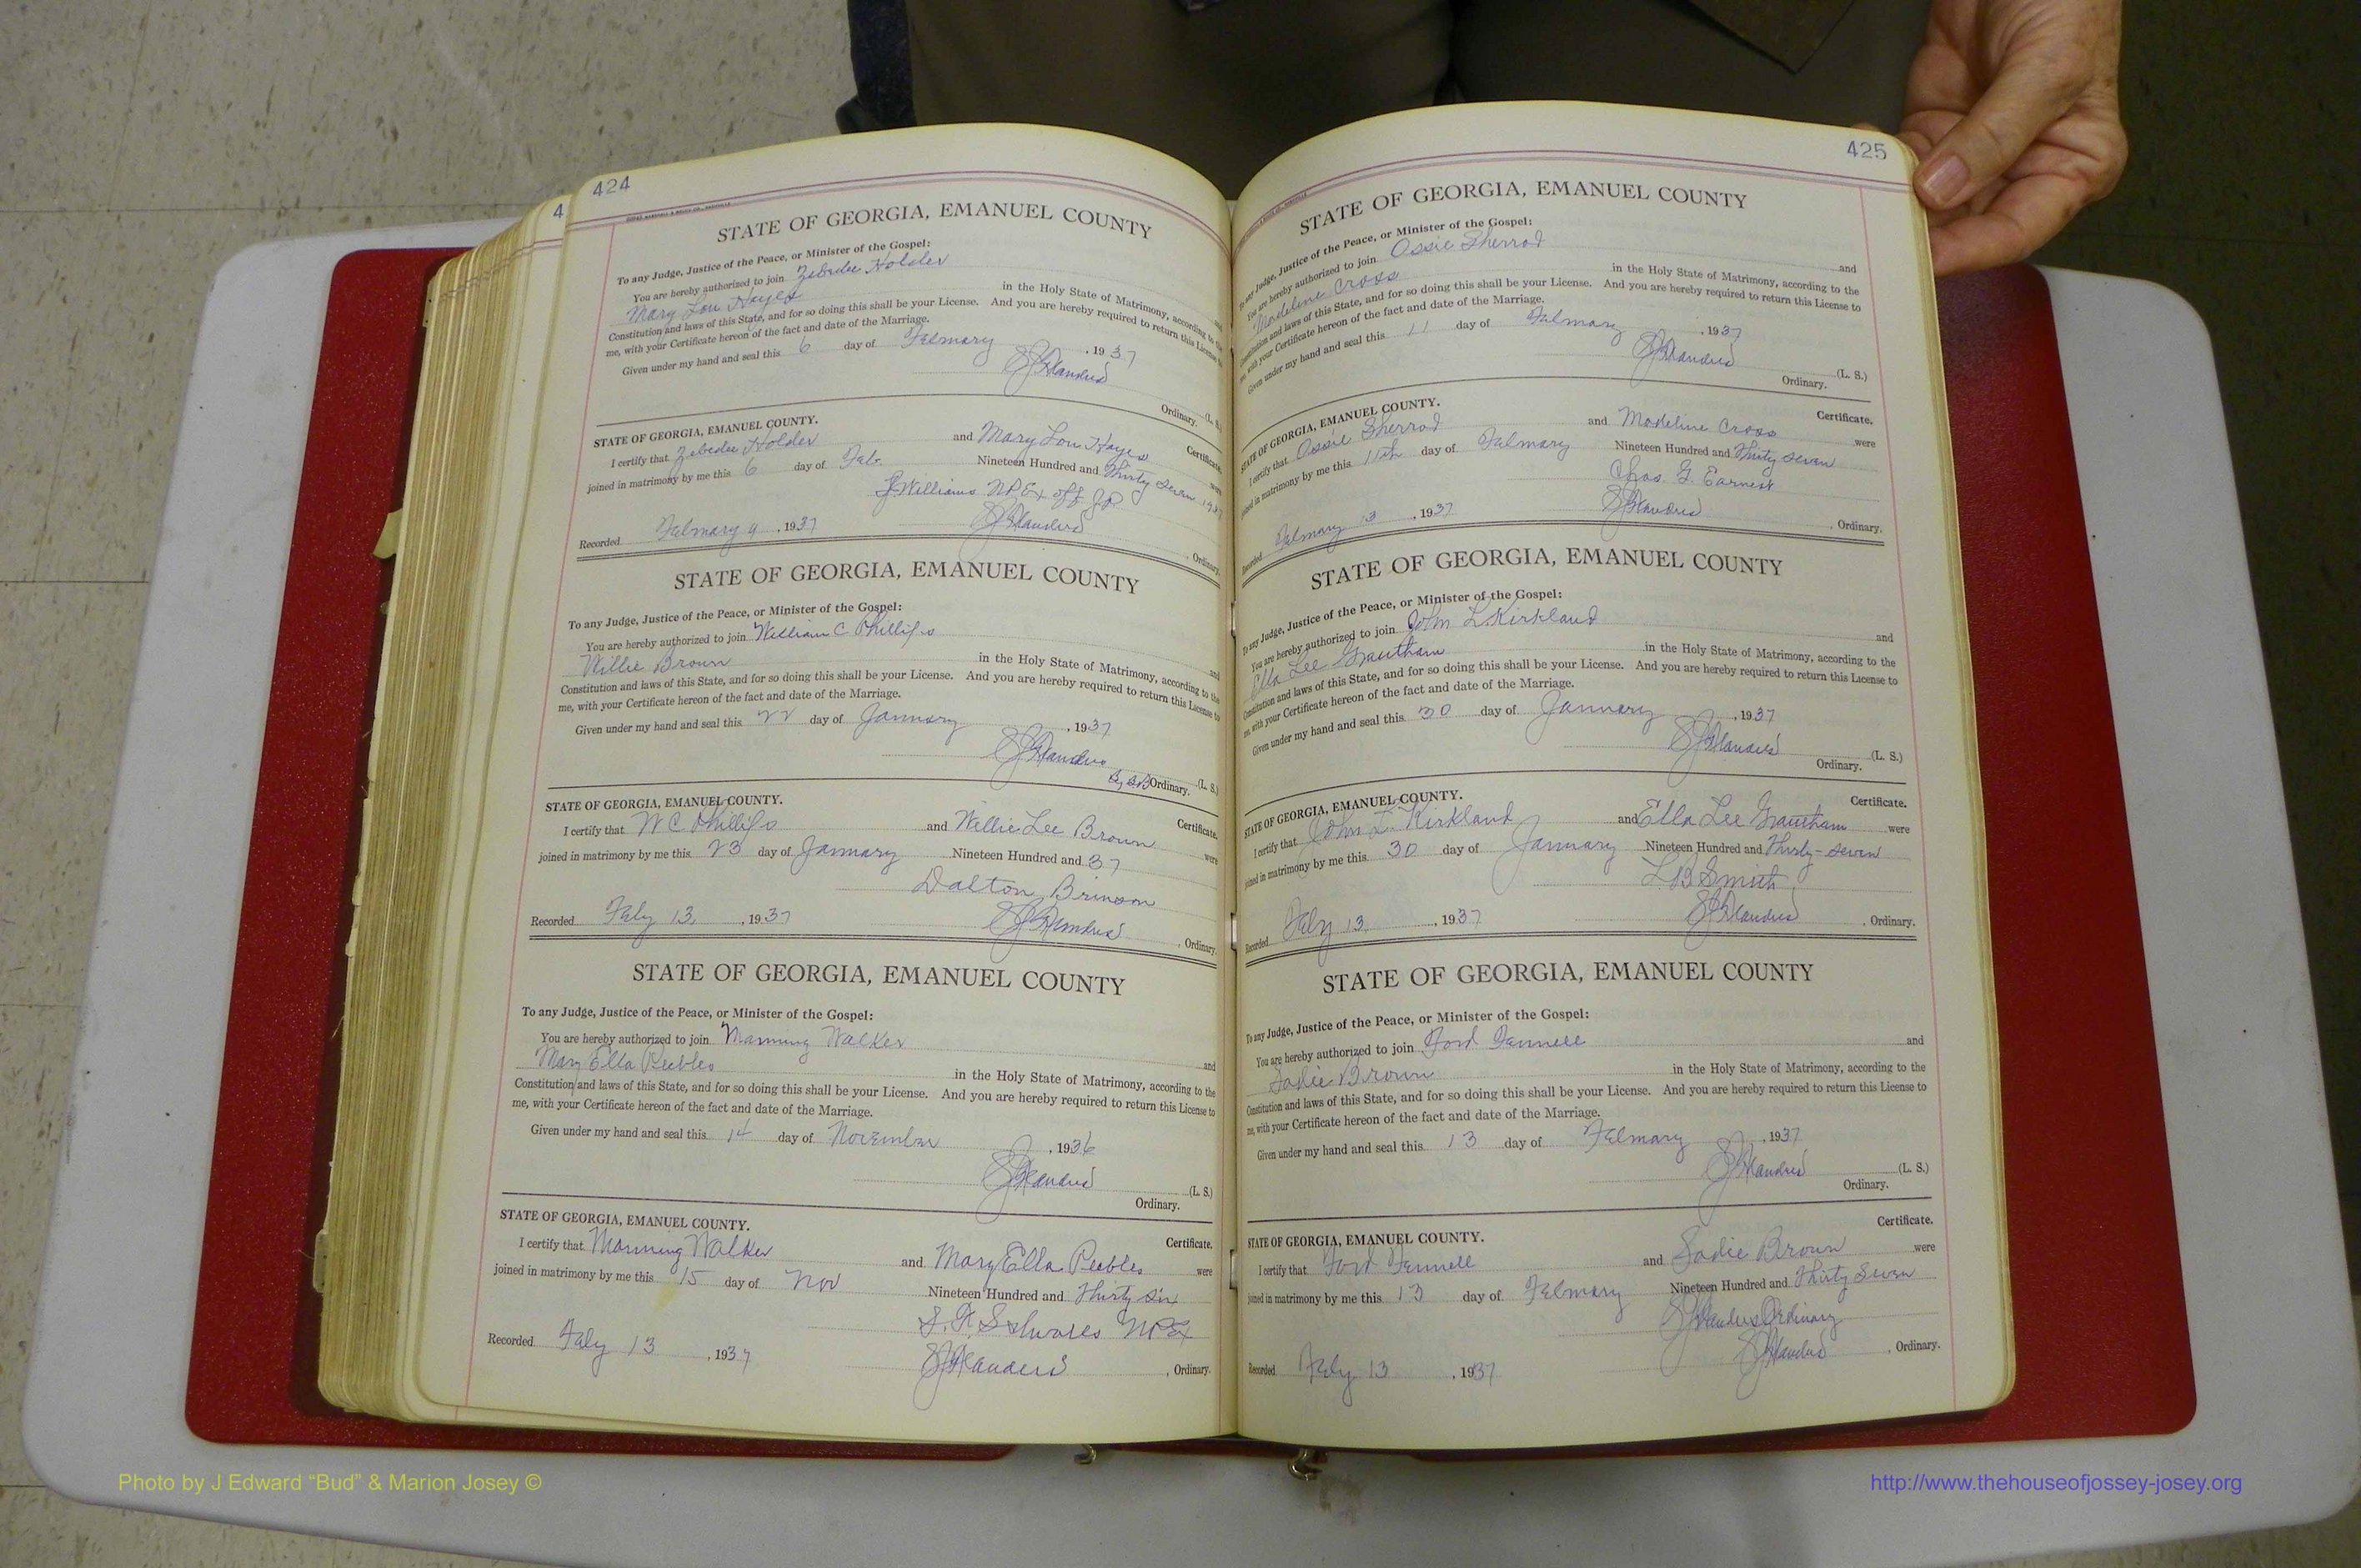 424
STATE OF GEORGIA, EMANUEL COUNTY
To any Judge, Justice of the Peace, or Minister of the Gospel:
You are hereby authorized to join Zebedee Holder and
Mary Lou Hayes in the Holy State of Matrimony, according to the
Constitution and laws of this State, and for so doing this shall be your License. And you are hereby required to return this License to
me, with your Certificate hereon of the fact and date of the Marriage.
Given under my hand and seal this 6 day of February, 1937
(L. S.)
Ordinary.
STATE OF GEORGIA, EMANUEL COUNTY. Certificate.
I certify that Zebedee Holder and Mary Lou Hayes were
joined in matrimony by me this 6 day of Feb. Nineteen Hundred and Thirty Seven 1937
Williams N.P. Ex off J.P.
Recorded February 9, 1937 , Ordinary.
STATE OF GEORGIA, EMANUEL COUNTY
To any Judge, Justice of the Peace, or Minister of the Gospel:
You are hereby authorized to join William C Phillips and
Willie Brown in the Holy State of Matrimony, according to the
Constitution and laws of this State, and for so doing this shall be your License. And you are hereby required to return this License to
me, with your Certificate hereon of the fact and date of the Marriage.
Given under my hand and seal this 22 day of January, 1937
Ordinary. (L. S.)
STATE OF GEORGIA, EMANUEL COUNTY. Certificate.
I certify that W C Phillips and Willie Lee Brown were
joined in matrimony by me this 23 day of January Nineteen Hundred and 37
Dalton Brinson
Recorded Feby 13, 1937 , Ordinary.
STATE OF GEORGIA, EMANUEL COUNTY
To any Judge, Justice of the Peace, or Minister of the Gospel:
You are hereby authorized to join Manning Walker and
Mary Ella Peebles in the Holy State of Matrimony, according to the
Constitution and laws of this State, and for so doing this shall be your License. And you are hereby required to return this License to
me, with your Certificate hereon of the fact and date of the Marriage.
Given under my hand and seal this 14 day of November, 1936
(L. S.)
Ordinary.
STATE OF GEORGIA, EMANUEL COUNTY. Certificate.
I certify that Manning Walker and Mary Ella Peebles were
joined in matrimony by me this 15 day of Nov Nineteen Hundred and Thirty six
Recorded Feby 13, 1937 , Ordinary.
425
STATE OF GEORGIA, EMANUEL COUNTY
To any Judge, Justice of the Peace, or Minister of the Gospel:
You are hereby authorized to join Ossie Sherrod and
Modeline Cross in the Holy State of Matrimony, according to the
Constitution and laws of this State, and for so doing this shall be your License. And you are hereby required to return this License to
me, with your Certificate hereon of the fact and date of the Marriage.
Given under my hand and seal this 11 day of February, 1937
(L. S.)
Ordinary.
STATE OF GEORGIA, EMANUEL COUNTY. Certificate.
I certify that Ossie Sherrod and Modeline Cross were
joined in matrimony by me this 11th day of February Nineteen Hundred and Thirty seven
Chas. G. Earnest
Recorded February 13, 1937 , Ordinary.
STATE OF GEORGIA, EMANUEL COUNTY
To any Judge, Justice of the Peace, or Minister of the Gospel:
You are hereby authorized to join John L Kirkland and
Ella Lee Grantham in the Holy State of Matrimony, according to the
Constitution and laws of this State, and for so doing this shall be your License. And you are hereby required to return this License to
me, with your Certificate hereon of the fact and date of the Marriage.
Given under my hand and seal this 30 day of January, 1937
(L. S.)
Ordinary.
STATE OF GEORGIA, EMANUEL COUNTY. Certificate.
I certify that John L. Kirkland and Ella Lee Grantham were
joined in matrimony by me this 30 day of January Nineteen Hundred and Thirty-seven
L B Smith
Recorded Feby 13, 1937 , Ordinary.
STATE OF GEORGIA, EMANUEL COUNTY
To any Judge, Justice of the Peace, or Minister of the Gospel:
You are hereby authorized to join Ford Fennell and
Sadie Brown in the Holy State of Matrimony, according to the
Constitution and laws of this State, and for so doing this shall be your License. And you are hereby required to return this License to
me, with your Certificate hereon of the fact and date of the Marriage.
Given under my hand and seal this 13 day of February, 1937
(L. S.)
Ordinary.
STATE OF GEORGIA, EMANUEL COUNTY. Certificate.
I certify that Ford Fennell and Sadie Brown were
joined in matrimony by me this 13 day of February Nineteen Hundred and Thirty Seven
Ordinary
Recorded Feby 13, 1937 , Ordinary.
Photo by J Edward “Bud” & Marion Josey ©
http://www.thehouseofjossey-josey.org